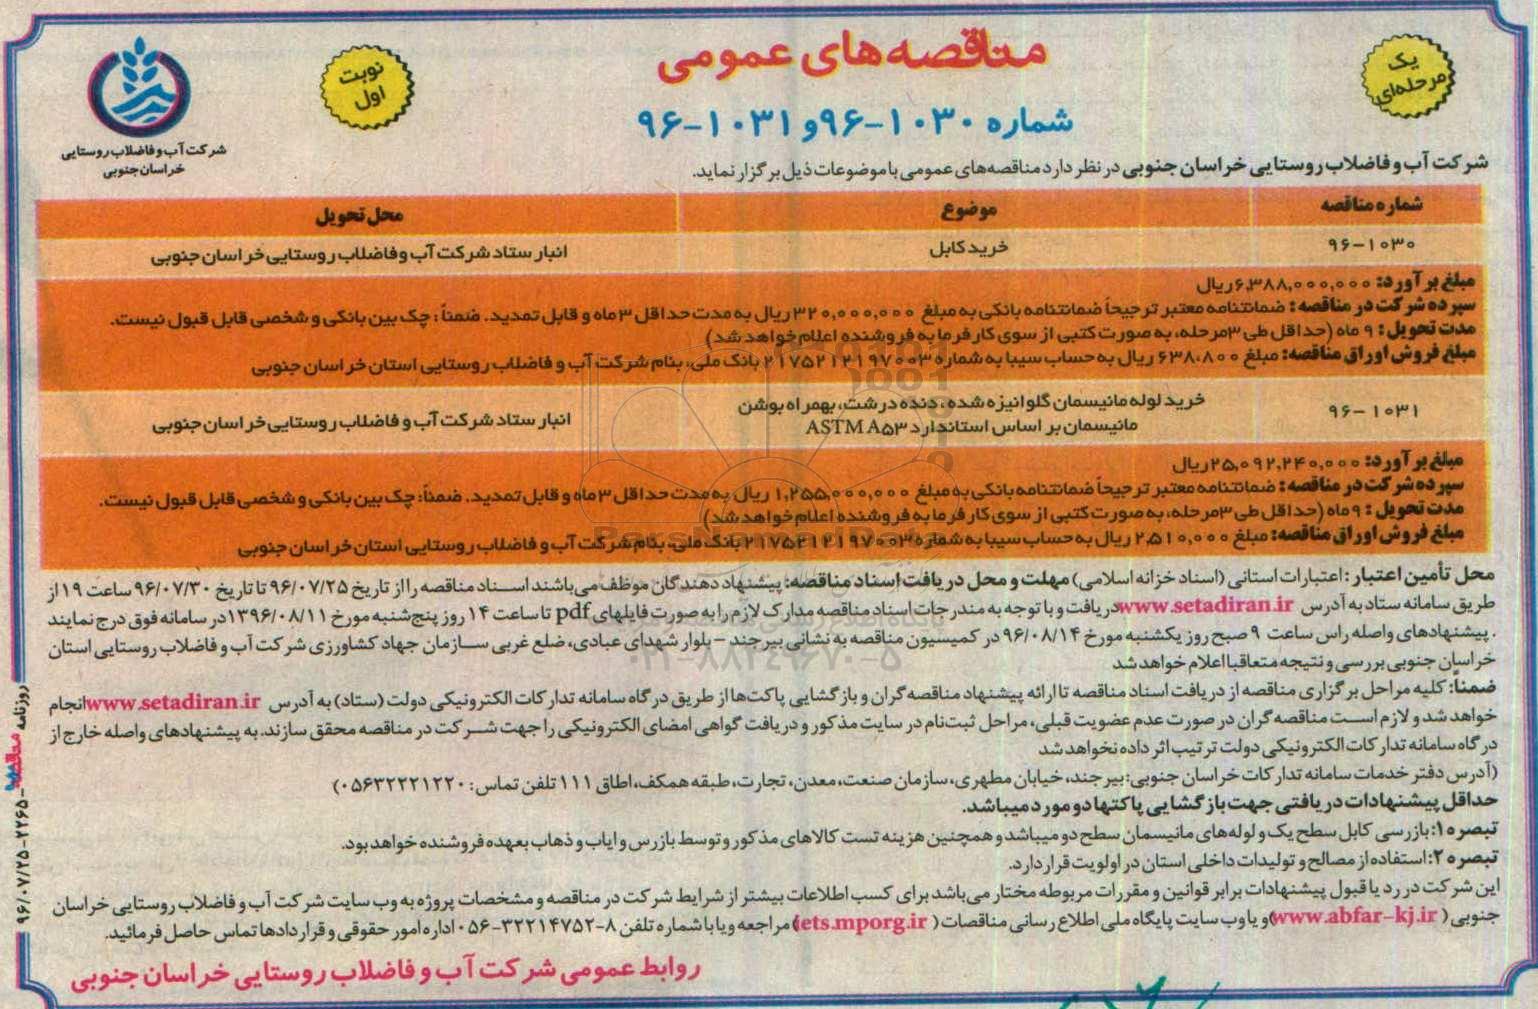 مناقصه‌های عمومی
یک مرحله‌ای
نوبت اول
شماره ۱۰۳۰-۹۶ و ۱۰۳۱-۹۶
شرکت آب و فاضلاب روستایی
خراسان جنوبی
شرکت آب و فاضلاب روستایی خراسان جنوبی در نظر دارد مناقصه‌های عمومی با موضوعات ذیل برگزار نماید.
شماره مناقصه موضوع محل تحویل
۹۶-۱۰۳۰ خرید کابل انبار ستاد شرکت آب و فاضلاب روستایی خراسان جنوبی
مبلغ برآورد: ۶,۳۸۸,۰۰۰,۰۰۰ ریال
سپرده شرکت در مناقصه: ضمانتنامه معتبر ترجیحاً ضمانتنامه بانکی به مبلغ ۳۲۰,۰۰۰,۰۰۰ ریال به مدت حداقل ۳ ماه و قابل تمدید. ضمناً: چک بین بانکی و شخصی قابل قبول نیست.
مدت تحویل: ۹ ماه (حداقل طی ۳مرحله، به صورت کتبی از سوی کارفرما به فروشنده اعلام خواهد شد)
مبلغ فروش اوراق مناقصه: مبلغ ۶۳۸,۸۰۰ ریال به حساب سیبا به شماره ۲۱۷۵۲۱۲۱۹۷۰۰۳ بانک ملی، بنام شرکت آب و فاضلاب روستایی استان خراسان جنوبی
۹۶-۱۰۳۱ خرید لوله مانیسمان گلوانیزه شده، دنده درشت، بهمراه بوشن مانیسمان بر اساس استاندارد ASTM A۵۳ انبار ستاد شرکت آب و فاضلاب روستایی خراسان جنوبی
مبلغ برآورد: ۲۵,۰۹۲,۲۴۰,۰۰۰ ریال
سپرده شرکت در مناقصه: ضمانتنامه معتبر ترجیحاً ضمانتنامه بانکی به مبلغ ۱,۲۵۵,۰۰۰,۰۰۰ ریال به مدت حداقل ۳ ماه و قابل تمدید. ضمناً: چک بین بانکی و شخصی قابل قبول نیست.
مدت تحویل: ۹ ماه (حداقل طی ۳مرحله، به صورت کتبی از سوی کارفرما به فروشنده اعلام خواهد شد)
مبلغ فروش اوراق مناقصه: مبلغ ۲,۵۱۰,۰۰۰ ریال به حساب سیبا به شماره ۲۱۷۵۲۱۲۱۹۷۰۰۳ بانک ملی، بنام شرکت آب و فاضلاب روستایی استان خراسان جنوبی
محل تأمین اعتبار: اعتبارات استانی (اسناد خزانه اسلامی) مهلت و محل دریافت اسناد مناقصه: پیشنهاد دهندگان موظف می‌باشند اسناد مناقصه را از تاریخ ۹۶/۰۷/۲۵ تا تاریخ ۹۶/۰۷/۳۰ ساعت ۱۹ از
طریق سامانه ستاد به آدرس www.setadiran.ir دریافت و با توجه به مندرجات اسناد مناقصه مدارک لازم را به صورت فایلهای pdf تا ساعت ۱۴ روز پنج‌شنبه مورخ ۱۳۹۶/۰۸/۱۱ در سامانه فوق درج نمایند
. پیشنهادهای واصله راس ساعت ۹ صبح روز یکشنبه مورخ ۹۶/۰۸/۱۴ در کمیسیون مناقصه به نشانی بیرجند - بلوار شهدای عبادی، ضلع غربی سازمان جهاد کشاورزی شرکت آب و فاضلاب روستایی استان
خراسان جنوبی بررسی و نتیجه متعاقبا اعلام خواهد شد
ضمناً: کلیه مراحل برگزاری مناقصه از دریافت اسناد مناقصه تا ارائه پیشنهاد مناقصه‌گران و بازگشایی پاکت‌ها از طریق درگاه سامانه تدارکات الکترونیکی دولت (ستاد) به آدرس www.setadiran.ir انجام
خواهد شد و لازم است مناقصه‌گران در صورت عدم عضویت قبلی، مراحل ثبت‌نام در سایت مذکور و دریافت گواهی امضای الکترونیکی را جهت شرکت در مناقصه محقق سازند. به پیشنهادهای واصله خارج از
درگاه سامانه تدارکات الکترونیکی دولت ترتیب اثر داده نخواهد شد
(آدرس دفتر خدمات سامانه تدارکات خراسان جنوبی: بیرجند، خیابان مطهری، سازمان صنعت، معدن، تجارت، طبقه همکف، اطاق ۱۱۱ تلفن تماس: ۰۵۶۳۲۲۲۱۲۲۰)
حداقل پیشنهادات دریافتی جهت بازگشایی پاکتها دو مورد میباشد.
تبصره ۱: بازرسی کابل سطح یک و لوله‌های مانیسمان سطح دو میباشد و همچنین هزینه تست کالاهای مذکور و توسط بازرس و ایاب و ذهاب بعهده فروشنده خواهد بود.
تبصره ۲: استفاده از مصالح و تولیدات داخلی استان در اولویت قرار دارد.
این شرکت در رد یا قبول پیشنهادات برابر قوانین و مقررات مربوطه مختار می‌باشد برای کسب اطلاعات بیشتر از شرایط شرکت در مناقصه و مشخصات پروژه به وب سایت شرکت آب و فاضلاب روستایی خراسان
جنوبی (www.abfar-kj.ir) و یا وب سایت پایگاه ملی اطلاع رسانی مناقصات (iets.mporg.ir) مراجعه و یا با شماره تلفن ۸-۳۲۲۱۴۷۵۲-۰۵۶ اداره امور حقوقی و قراردادها تماس حاصل فرمائید.
روابط عمومی شرکت آب و فاضلاب روستایی خراسان جنوبی
روزنامه مناقصه - ۲۲۶۵ - ۹۶/۰۷/۲۵
۰۲۱-۸۸۳۴۹۶۷۰-۵